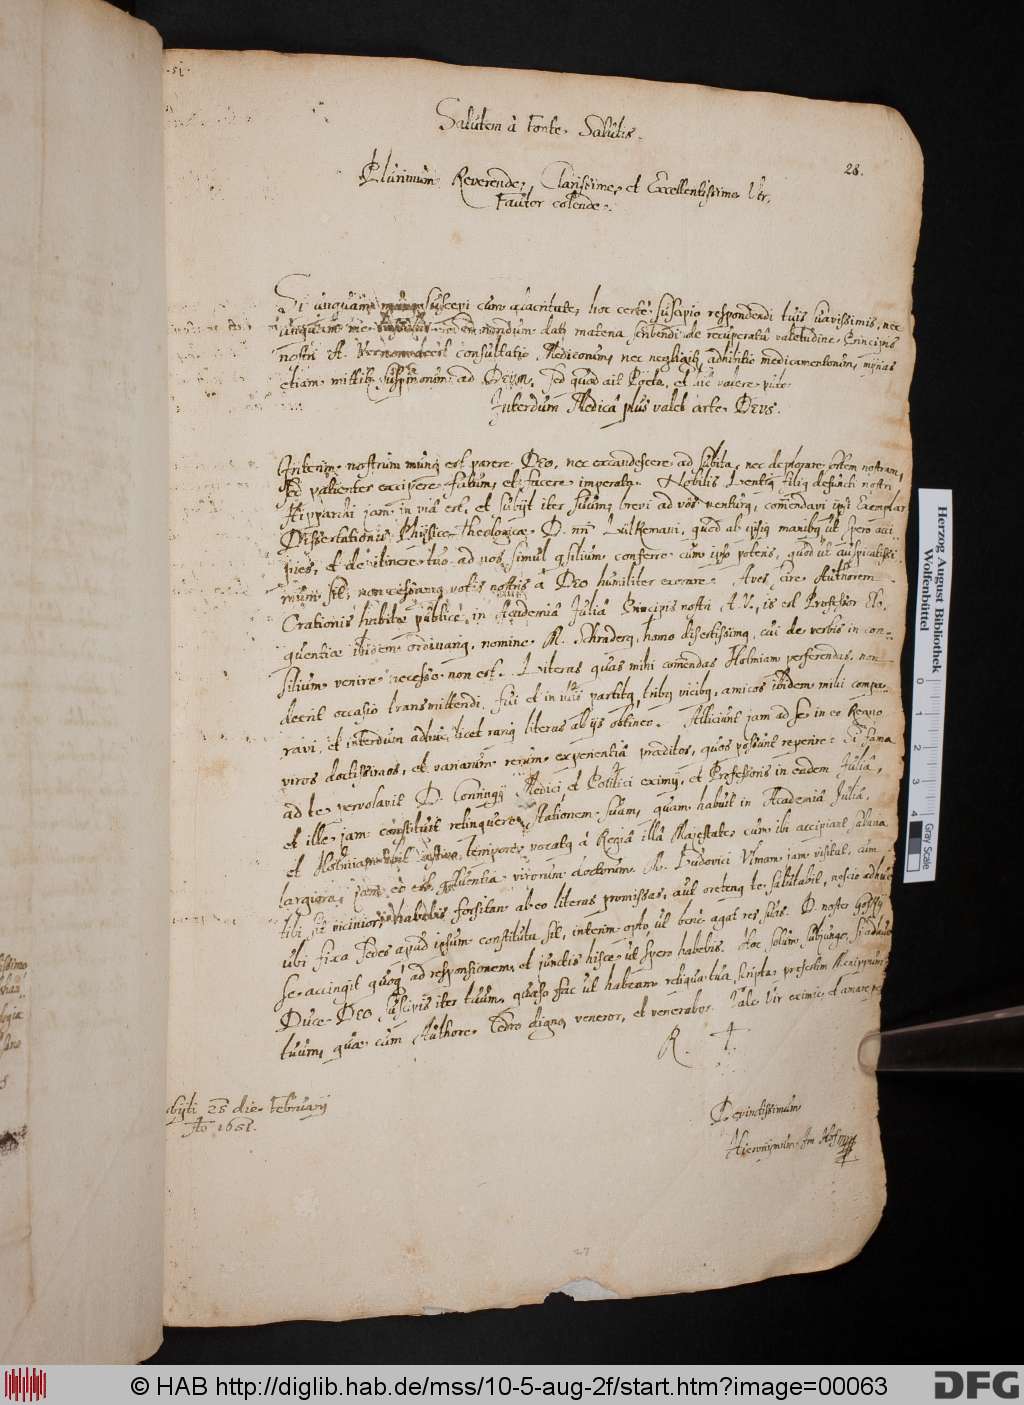 51.
28.
Salutem à Fonte Salutis.
Plurimùm Reverende, Clarissime, et Excellentissime Vir,
Fautor colende.
Si unquam suscepi cum alacritate, hoc certè suscipio respondendi tuis suavissimis, nec
unquam me dum dati matena scribendi de recuperatâ valetudine Principis
nostri A. consultatio Medicorum, nec negligitur additio medicamentorum, minus
etiam mittitur suspirionum ad DEUM. Sed quod ait Poeta, et
Interdum Medicâ plus valet arte DEUS.
Interim nostrûm munus est parere DEO, nec excandescere ad subita, nec deplorare sortem nostram,
sed patienter excipere futura, et facere imperata. Nobilis filius defuncti nostri
Hipparchi jam in viâ est, et subijt iter suum, brevi ad vos venturus, commendavi ipsi Exemplar
Dissertationis Physico-Theologicae D. nri Lutkemani, quod ab ipsius manibus ut spero acci-
pies, et de itinere tuo ad nos simul consilium conferre cum ipso poteris, quod ut auspicatissi-
mum sit, non cessamus votis nostris à DEO humiliter exorare. Aves scire Authorem
Orationis habitae publicè in Academiâ Juliâ Principis nostri A. V., is est Professor Elo-
quentiae ibidem ordinarius, nomine M. Schraderus, homo disertissimus, cui de verbis in con-
silium venire necesse non est. Literas quas mihi comendas Holmiam perferendas, non
deerit occasio transmittendi, fui et in viâ partitus tribus vicibus, amicos ibidem mihi compa-
ravi, et interdum adhuc licet rarius literas ab ijs obtineo. Alliciunt jam ad se in eo Regno
viros doctissimos, et variarum rerum experientiâ praeditos, quos possunt reperire. Si fama
ad te pervolavit D. Conringij Medici, et Politici eximij, et Professoris in eadem Juliâ,
et ille jam constituit relinquere Stationem suam, quam habuit in Academiâ Juliâ,
et Holmiam tempore, vocatus à Regiâ illâ Majestate, cum ibi accipiant salaria
largiora, jam eò est affluentia virorum doctorum. M. Ludovici Ulmam jam visitat, cum
tibi sit vicinior, habebis forsitan ab eo literas promissas, aut oretenus te salutabit, nescio adhuc
ubi fixa sedes apud ipsum constituta sit, interim opto, ut benè agat res suas. D. noster
se accingit quoque ad responsionem, et junctis hisce ut spero habebis. Hoc solum subjungo, si adhuc
Duce DEO suscipis iter tuum, quaeso fac ut habeam reliqua tua scripta, praesertim
tuum, quae cum Authore Cedro digno, veneror, et venerabor. Vale Vir eximie, et amare
R. T.
25 die Februarij
Ao 1651.
Devinctissimum
Hieronymum Im Hof
27
Herzog August Bibliothek
Wolfenbüttel
0 1 2 3 4
Gray Scale
© HAB http://diglib.hab.de/mss/10-5-aug-2f/start.htm?image=00063
DFG